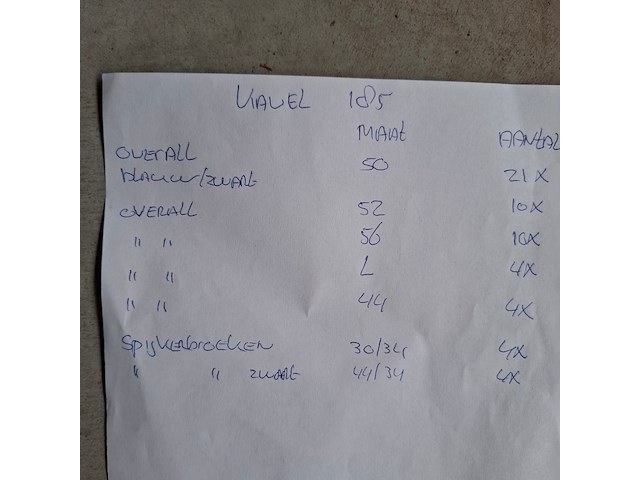 KAVEL 185
MAAT AANTAL
OVERALL
blauw/zwart 50 21X
OVERALL 52 10X
" " 56 10X
" " L 4X
" " 44 4X
Spijkerbroeken 30/34 4X
" " zwart 44/34 4X